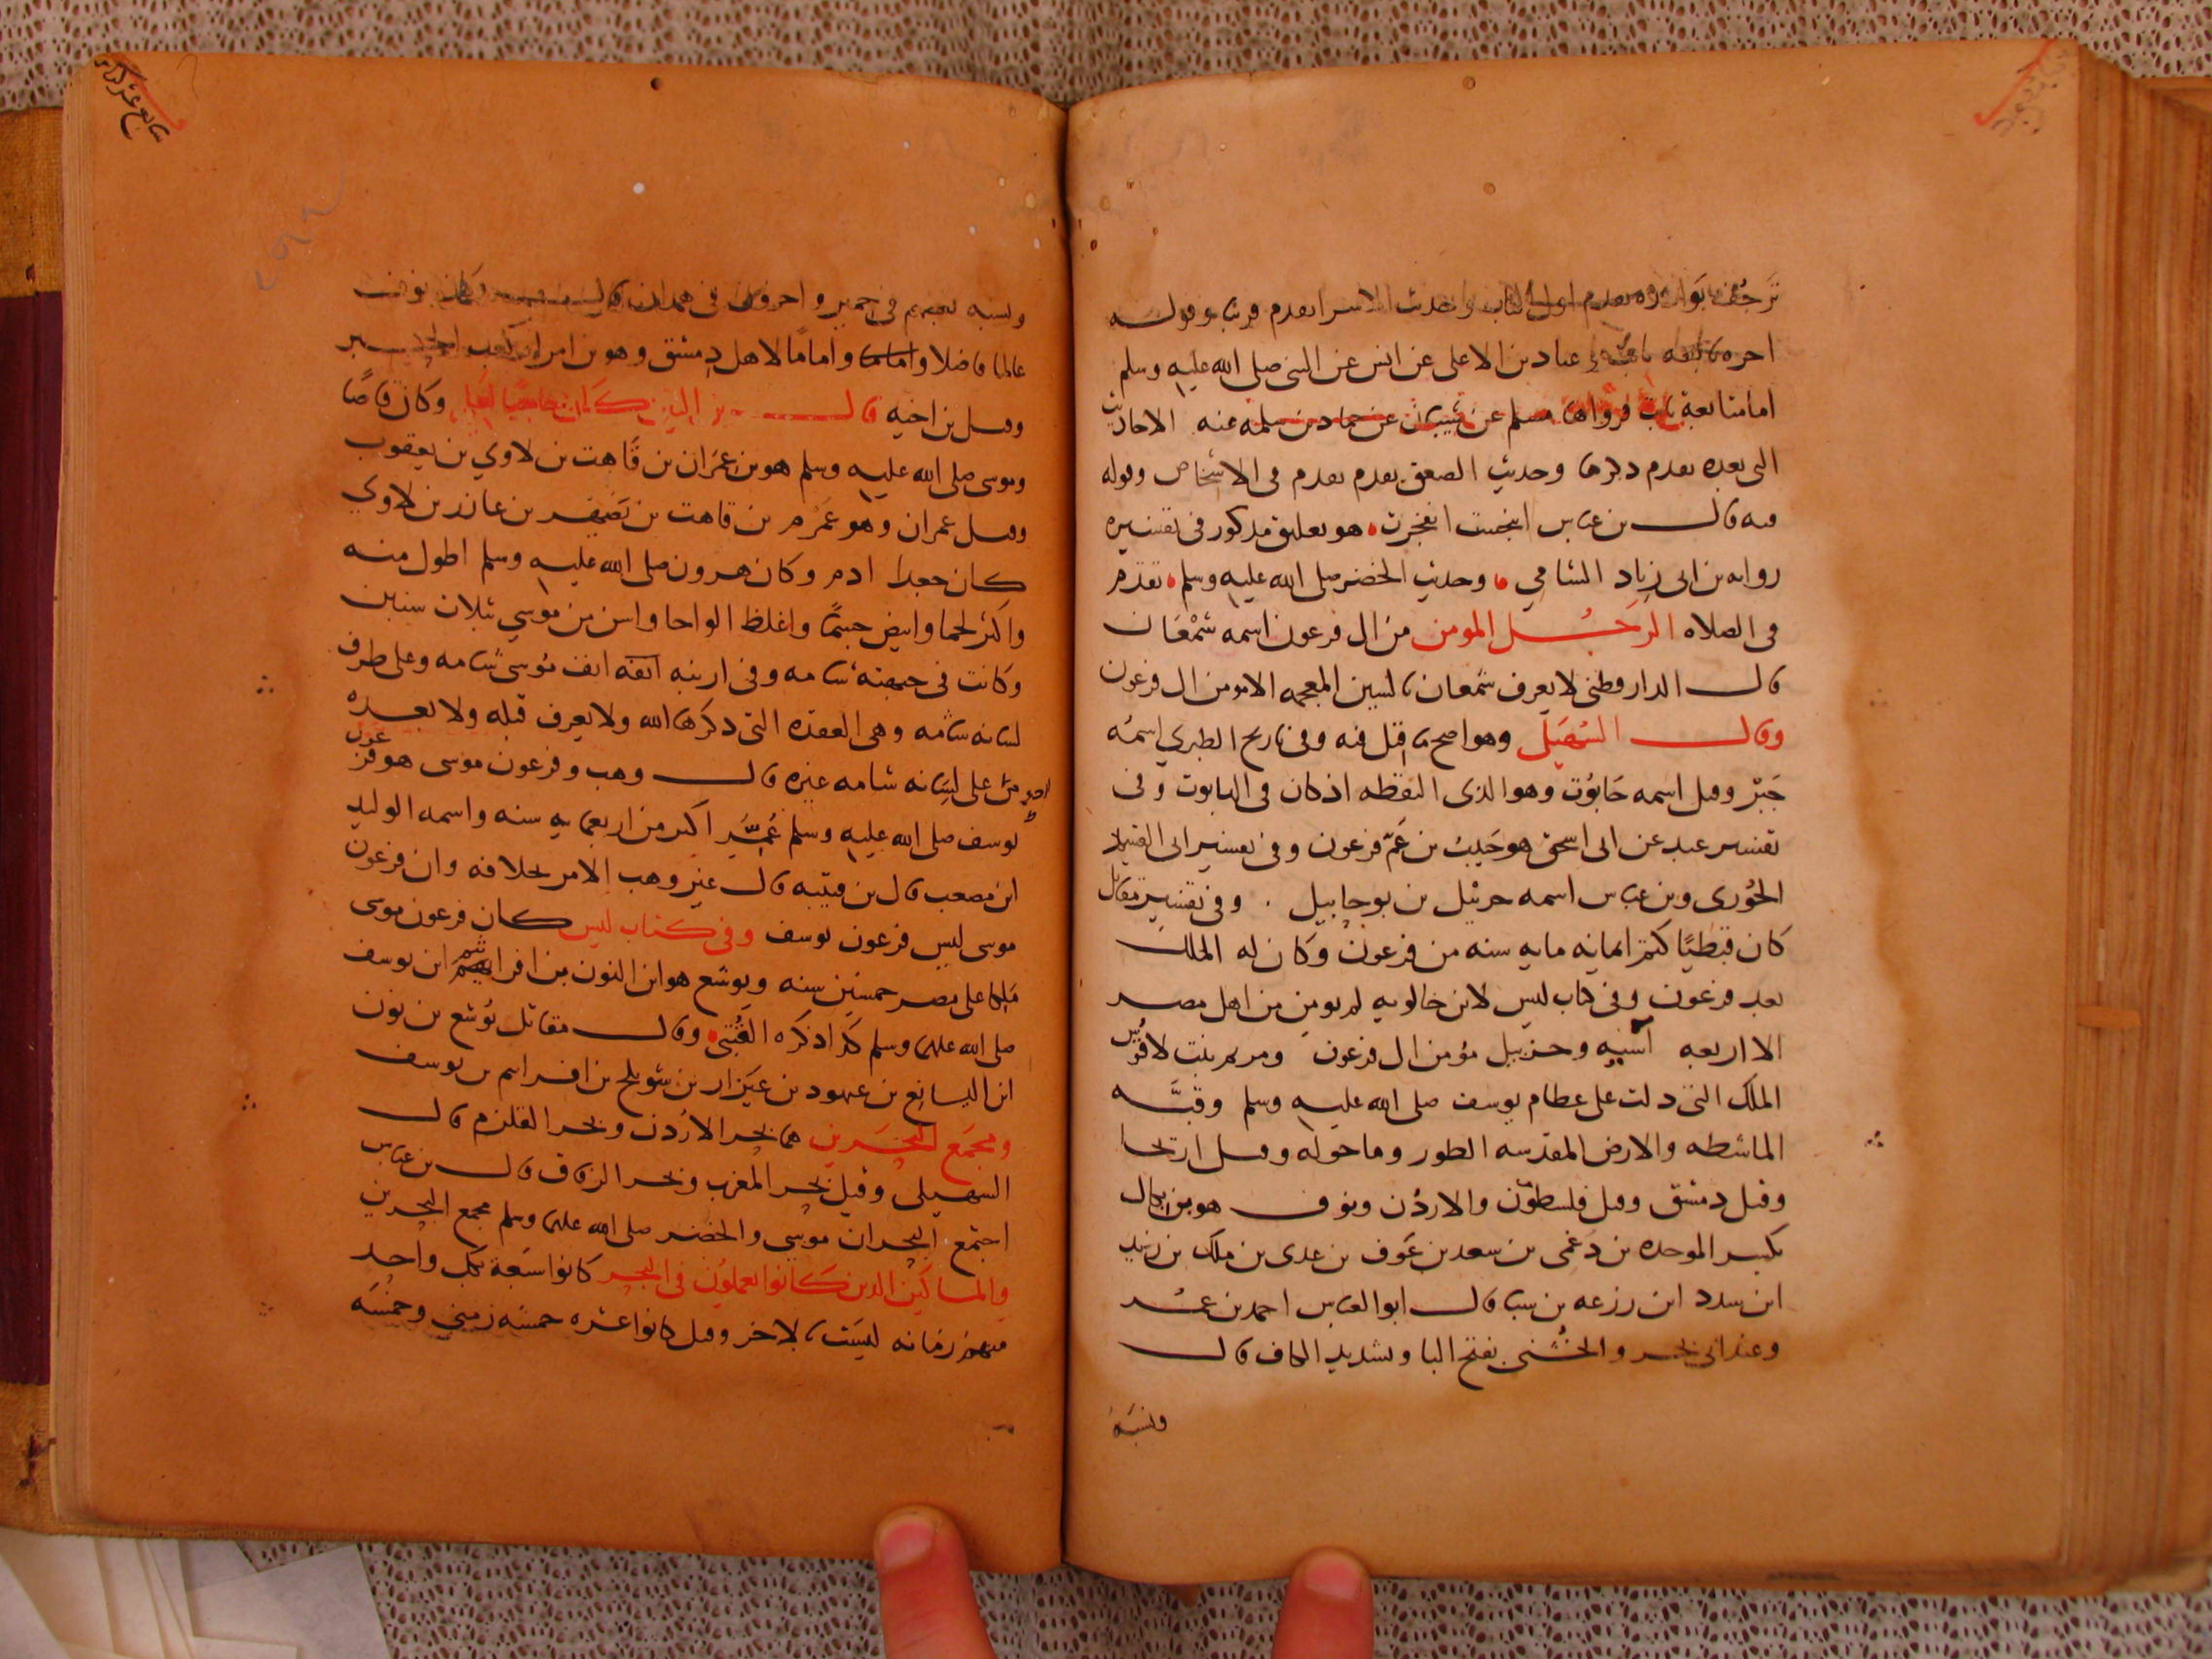 اول الكتاب وحدث الاسرا تقدم قريبا وقوله
عباد بن الاعلى عن انس عن النبي صلى الله عليه وسلم
اما متابعة ثابت فرواها مسلم عن شيبان عن حماد بن سلمه عنه الاحاديث
التى بعده تقدم ذكرها وحديث الصعق تقدم تقدم فى الاشخاص وقوله
فيه قال بن عباس انبجست انفجرت هو تعليق مذكور فى تفسيره
روايه بن ابى زياد الشامي وحديث الخضر صلى الله عليه وسلم تقدم
فى الصلاه الرجل المومن من ال فرعون اسمه شمعان
قال الدارقطنى لا يعرف شمعان بالشين المعجمه الا مومن ال فرعون
وقال السهيلى وهو اصح ما قيل فيه وفى تاريخ الطبري اسمه
جبر وقيل اسمه حابوت وهو الذى التقطه اذ كان فى التابوت وفى
تفسير عبد عن ابى اسحق هو حبيب بن عم فرعون وفى تفسير ابى
الجوزى وبن عباس اسمه حزبيل بن بوحابيل . وفى تفسير مقاتل
كان قبطيا كتم ايمانه مايه سنه من فرعون وكان له الملك
بعد فرعون وفى كتاب ليس لابن خالويه لم يومن من اهل مصر
الا اربعه آسيه وحزبيل مؤمن ال فرعون ومريم بنت لاقوس
الملك التى دلت على عظام يوسف صلى الله عليه وسلم
الماشطه والارض المقدسه الطور وما حوله وقيل اريحا
وقيل دمشق وقيل فلسطون والاردن ونوف هو بن بكال
بكسر الموحده بن دغمى بن سعد بن عوف بن عدى بن ملك بن زيد
ابن سدد ابن زرعه بن سبا قال ابو العباس احمد بن
وعند ابى بحر والخشنى بفتح البا وتشديد الكاف قال
ونسبه
ونسبه بعضهم فى حمير واخرون فى همدان
عالما فاضلا واماما لاهل دمشق وهو بن امراة كعب
وقيل بن اخيه قال بن التين كان حاجبا لعلي وكان قاصا
وموسى صلى الله عليه وسلم هو بن عمران بن قاهت بن لاوي بن يعقوب
وقيل عمران وهو عمرم بن قاهت بن بن عازر بن لاوي
كان جعدا ادم وكان هرون صلى الله عليه وسلم اطول منه
واكثر لحما وابيض جسما واغلظ الواحا واسن من موسي بثلاث سنين
وكانت فى جبهته شامه وفى ارنبه انفه انف موسى شامه وعلى طرف
لسانه شامه وهى العقده التى ذكرها الله ولا يعرف قبله ولا بعده
على لسانه شامه غيره قال وهب وفرعون موسى هو فرعون
يوسف صلى الله عليه وسلم عمر اكثر من اربعمايه سنه واسمه الوليد
ابن مصعب قال بن قتيبه قال غير وهب الامر بخلافه وان فرعون
موسى ليس فرعون يوسف وفى كتاب ليس كان فرعون موسى
ملكا على مصر خمسين سنه ويوشع هو ابن النون بن افراييم ابن يوسف
صلى الله عليهما وسلم كذا ذكره القتبى وقال مقاتل يوشع بن نون
ابن اليسانع بن عيهود بن عيزار بن شويلح بن افراسم بن يوسف
ومجمع البحرين هما بحر الاردن وبحر القلزم قال
السهيلى وقيل بحر المغرب وبحر الزقاق قال بن عباس
اجتمع البحران موسى والخضر صلى الله عليهما وسلم بمجمع البحرين
والمساكين الذين كانوا يعملون فى البحر كانوا سبعة بكل واحد
منهم زمانه ليست بالاخر وقيل كانوا عشره خمسه زمني وخمسه